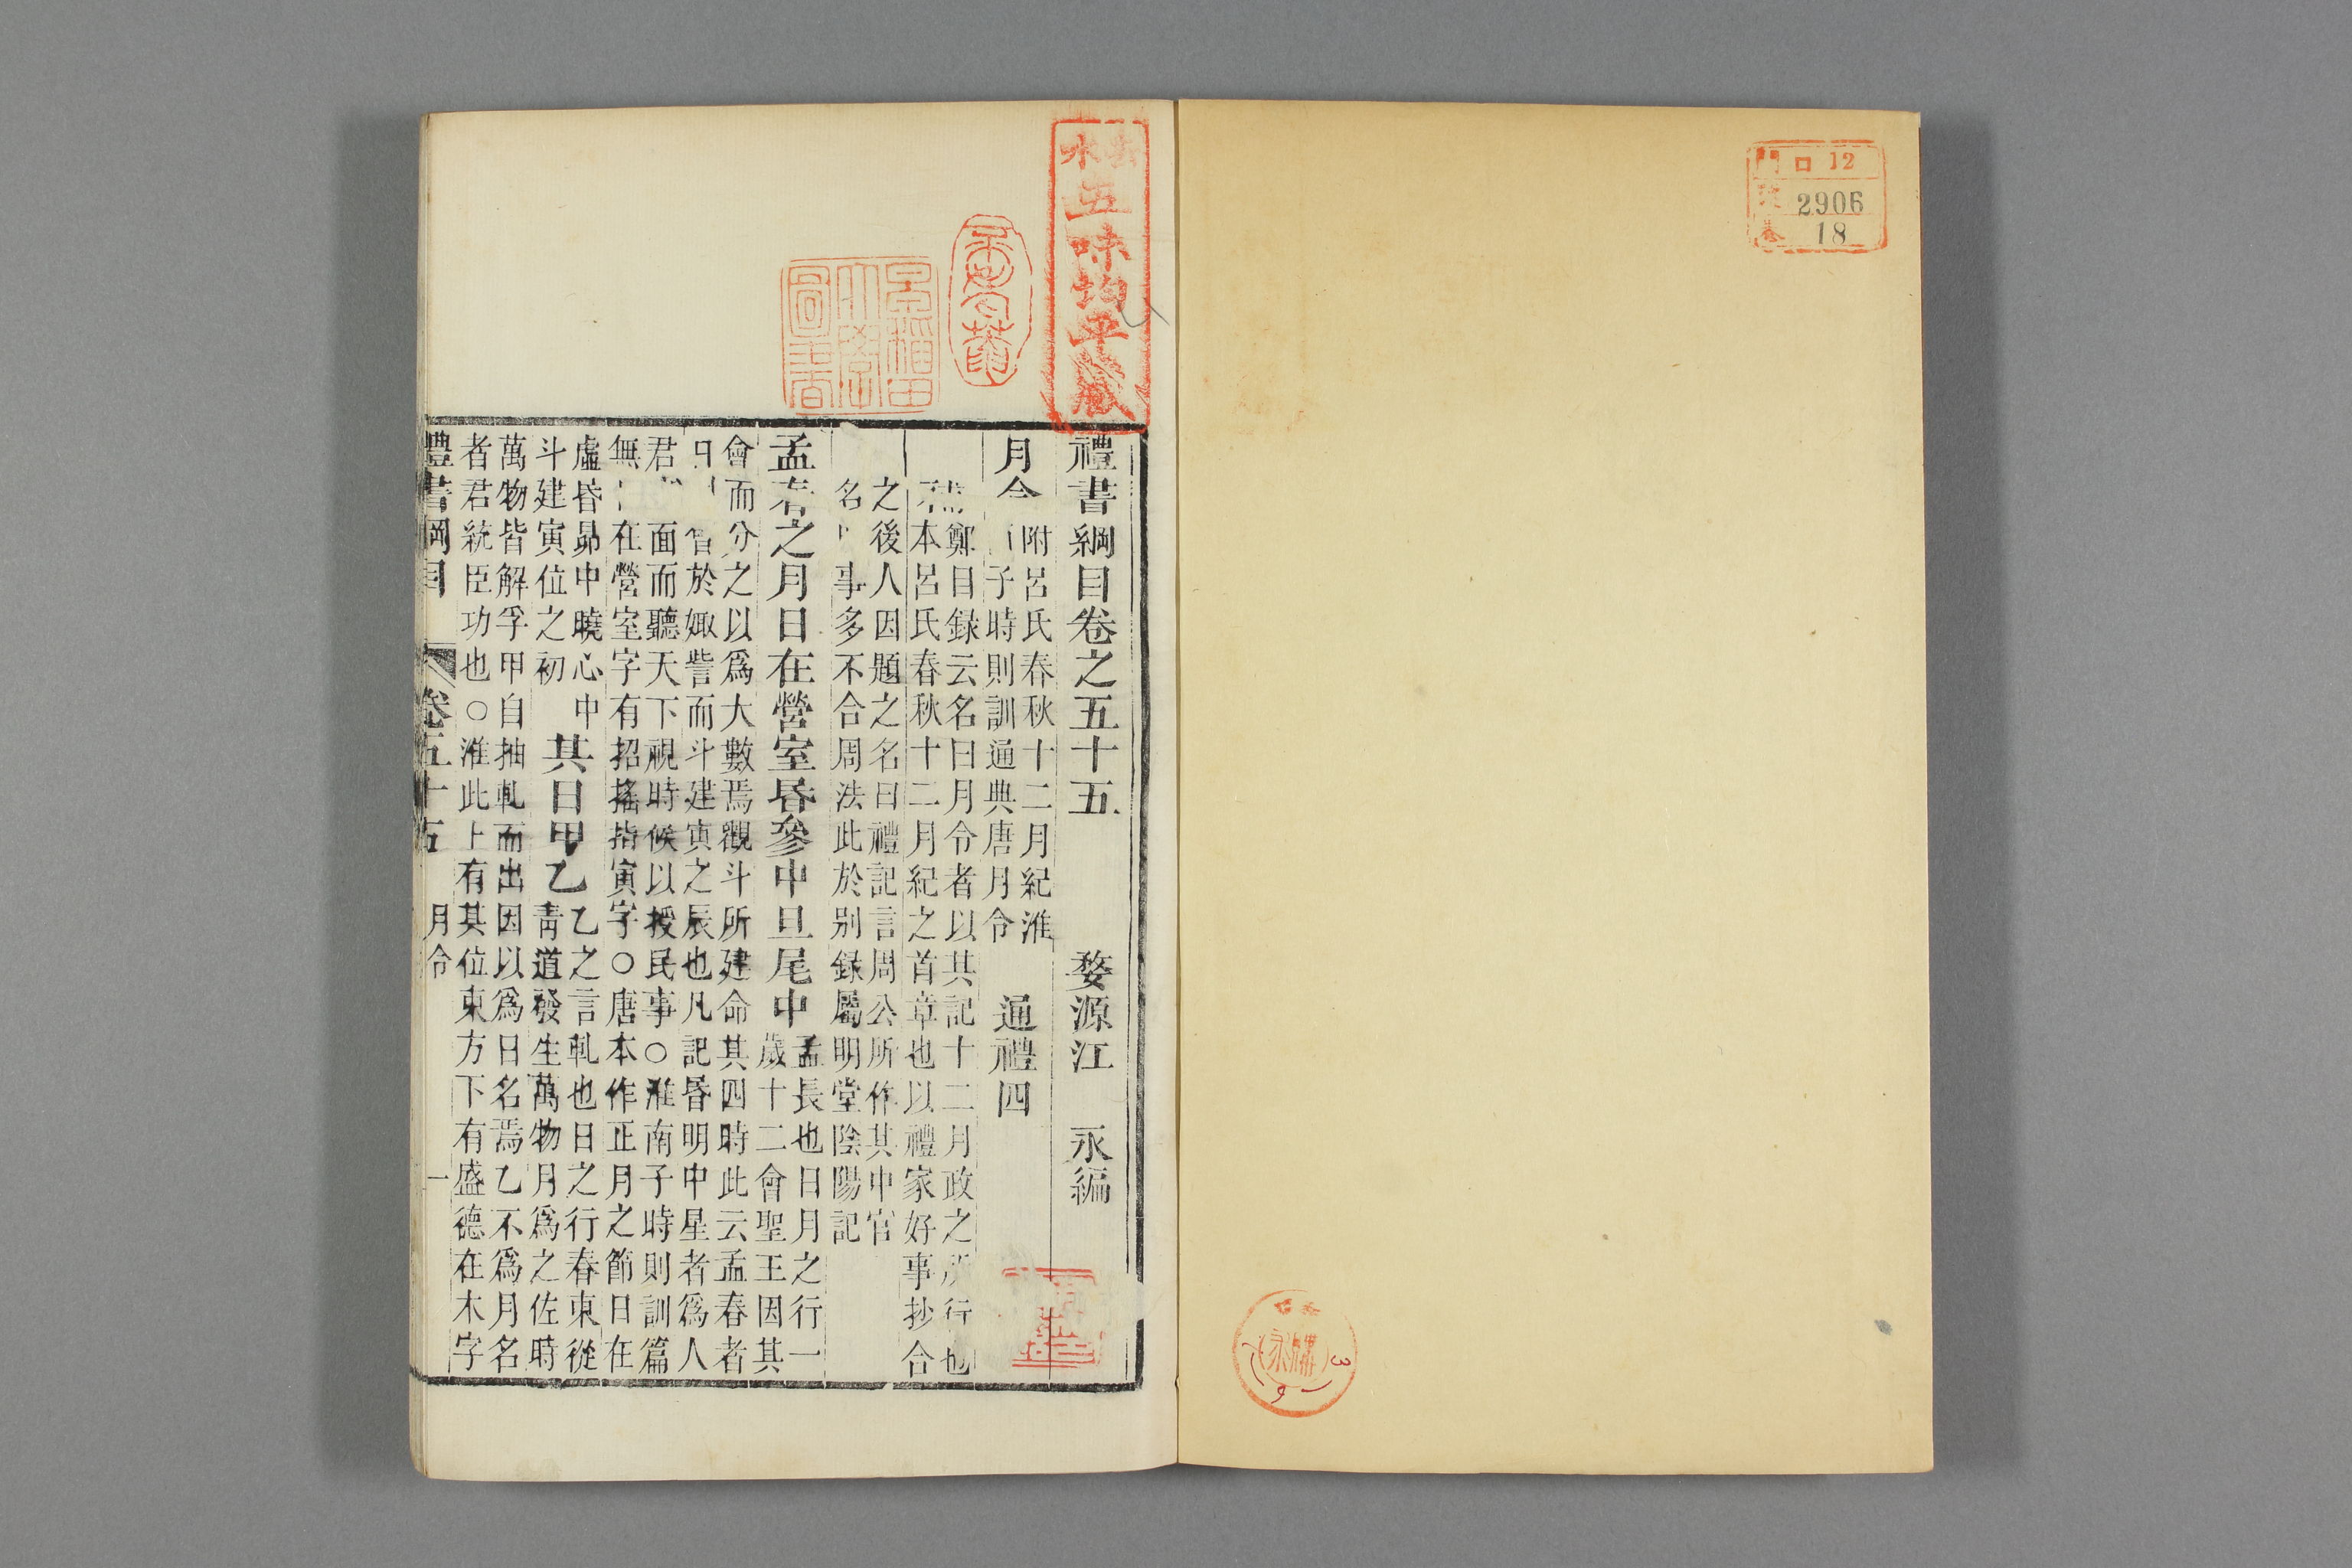 門 口 12
2906
18
五味均平藏
早稲田
大學
圖書
禮書綱目卷之五十五
婺源江 永編
月令
附呂氏春秋十二月紀淮
子時則訓通典唐月令
通禮四
鄭目録云名曰月令者以其記十二月政之所行也
本呂氏春秋十二月紀之首章也以禮家好事抄合
之後人因題之名曰禮記言周公所作其中官
名 事多不合周法此於别録屬明堂陰陽記
孟春之月日在營室昏參中旦尾中
孟長也日月之行一
歲十二會聖王因其
會而分之以爲大數焉觀斗所建命其四時此云孟春者
日 於娵訾而斗建寅之辰也凡記昏明中星者爲人
君 面而聽天下視時候以授民事○淮南子時則訓篇
無 在營室字有招搖指寅字○唐本作正月之節日在
虛昏昴中曉心中
斗建寅位之初
其日甲乙
乙之言軋也日之行春東從
靑道發生萬物月爲之佐時
萬物皆解孚甲自抽軋而出因以爲日名焉乙不爲月名
者君統臣功也○淮此上有其位東方下有盛德在木字
禮書綱目 卷五十五 月令 一
3
9